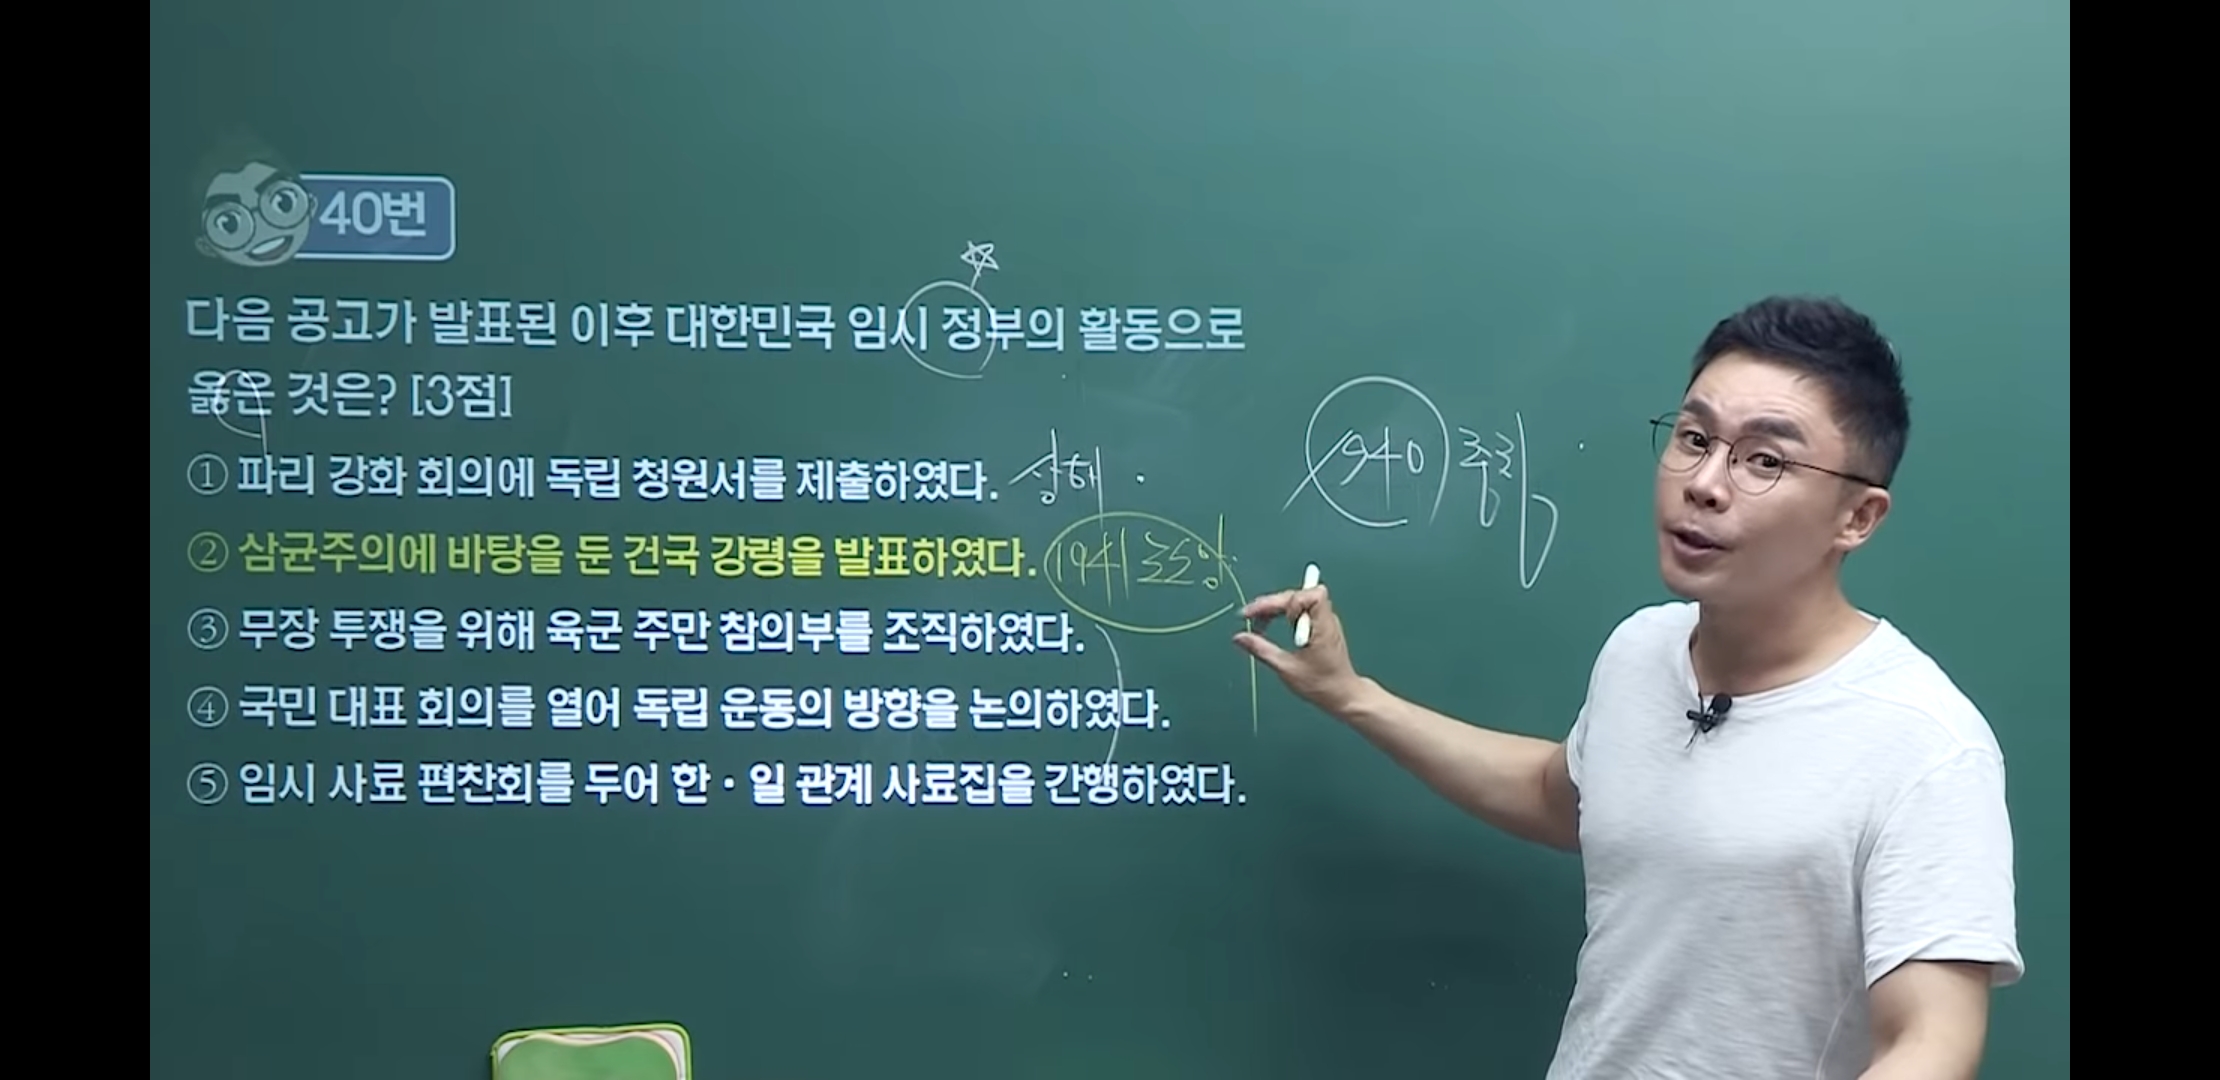 40번
다음 공고가 발표된 이후 대한민국 임시 정부의 활동으로
옳은 것은? [3점]
① 파리 강화 회의에 독립 청원서를 제출하였다. 상해
1940 충칭
② 삼균주의에 바탕을 둔 건국 강령을 발표하였다. 1941 조소앙
③ 무장 투쟁을 위해 육군 주만 참의부를 조직하였다.
④ 국민 대표 회의를 열어 독립 운동의 방향을 논의하였다.
⑤ 임시 사료 편찬회를 두어 한·일 관계 사료집을 간행하였다.